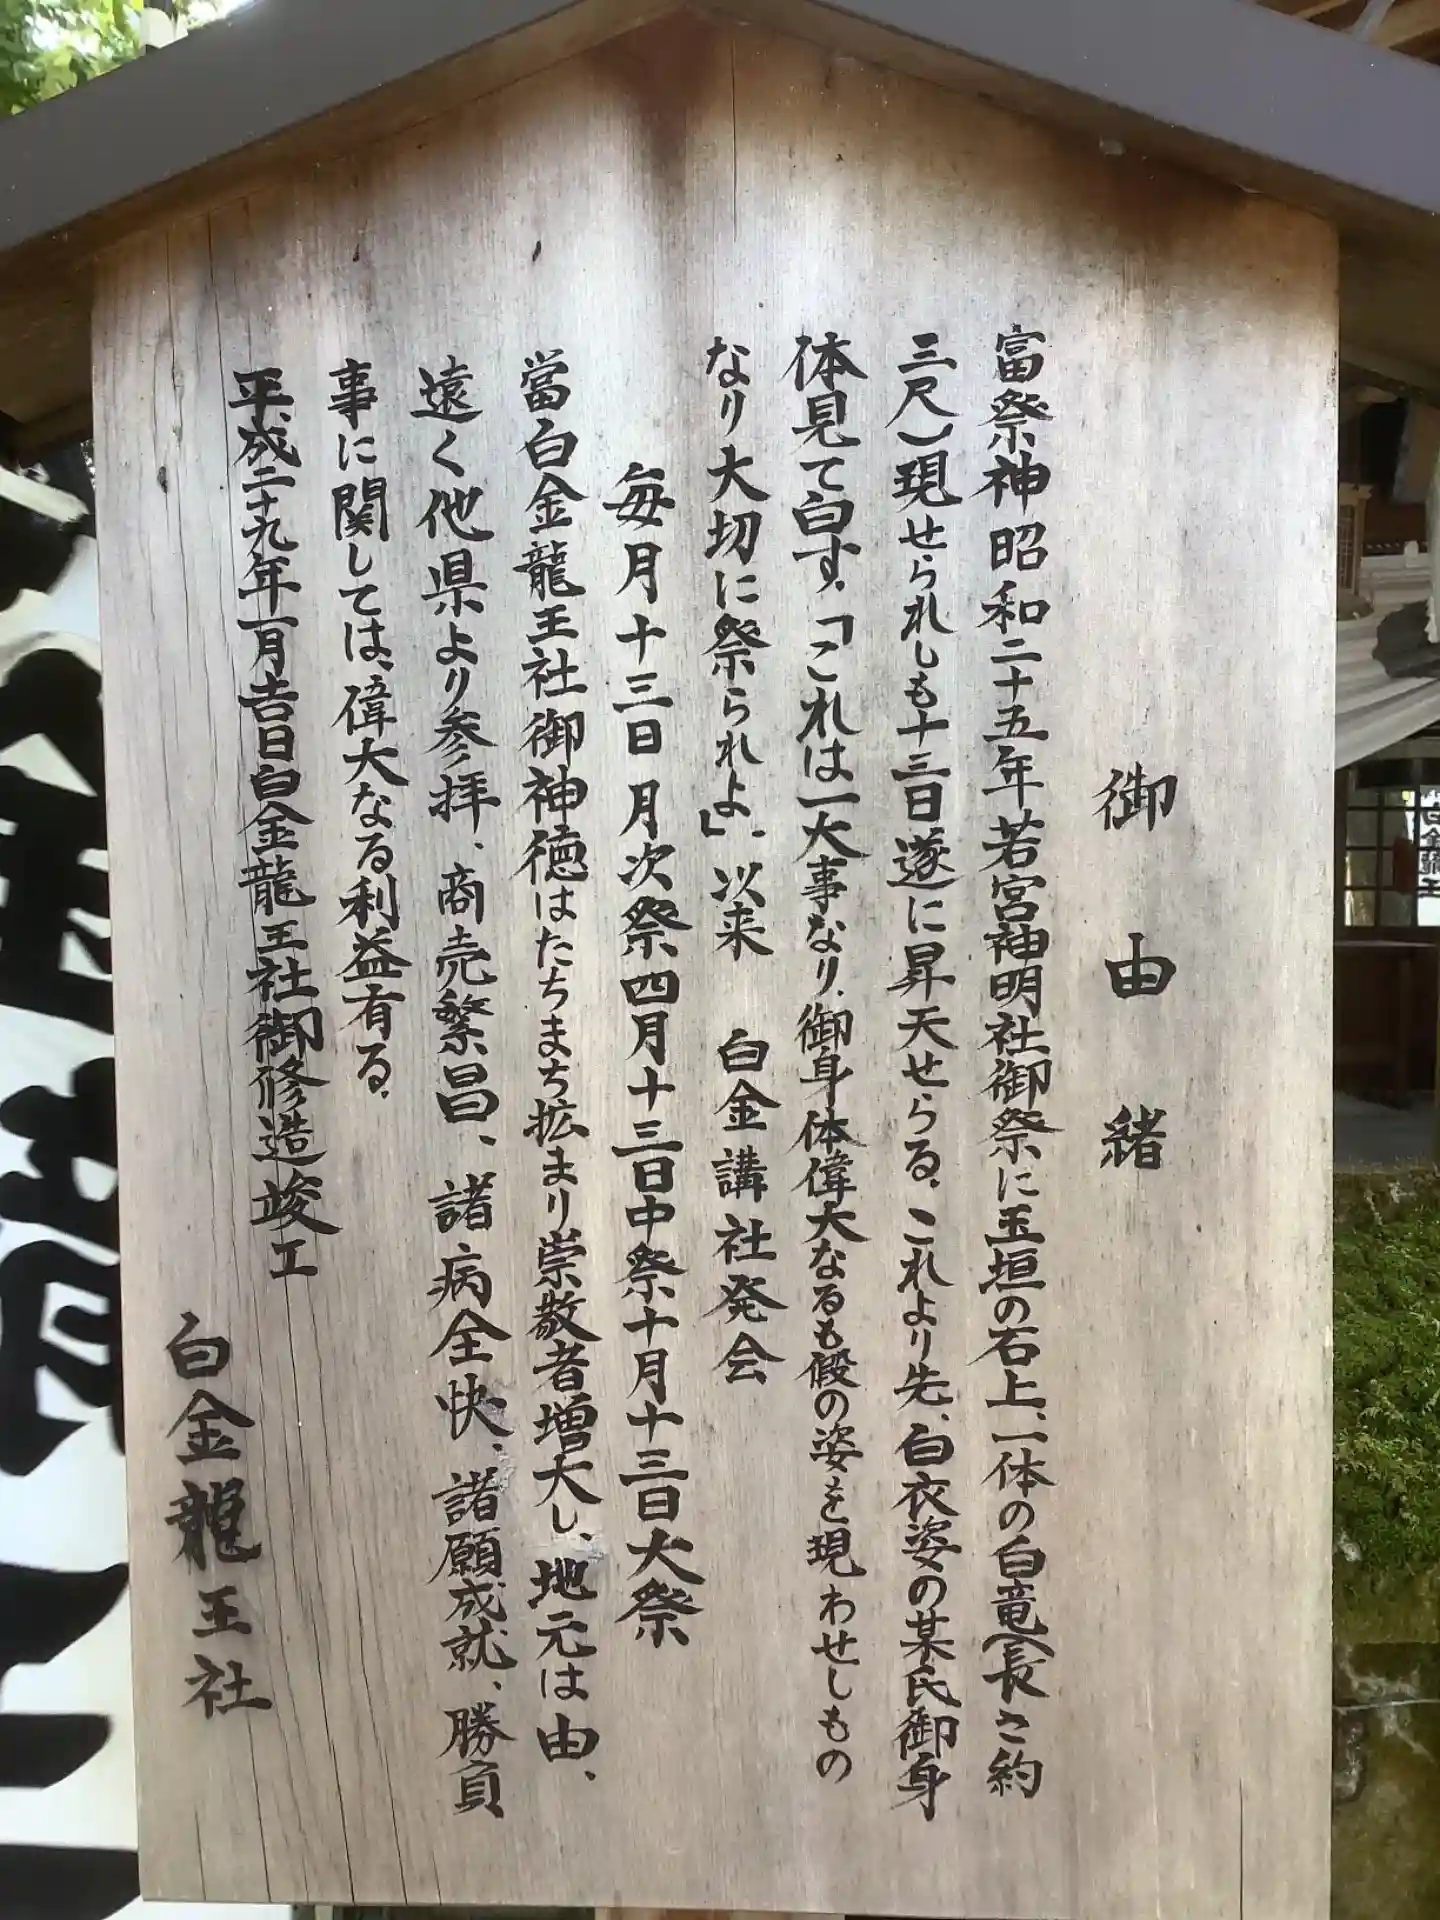 御由緒
富祭神昭和二十五年若宮神明社御祭に玉垣の右上、一体の白竜(長さ約
三尺)現せられしも十三日遂に昇天せらる。これより先、白衣姿の某氏御身
体見て白す。「これは一大事なり、御身体偉大なるも假の姿を現わせしもの
なり大切に祭られよ」。以来 白金講社発会
毎月十三日月次祭四月十三日中祭十月十三日大祭
當白金龍王社御神徳はたちまち拡まり崇敬者増大し、地元は由、
遠く他県より参拝、商売繁昌、諸病全快、諸願成就、勝負
事に関しては、偉大なる利益有る。
平成二十九年一月吉日白金龍王社御修造竣工
白金龍王社
白金龍王